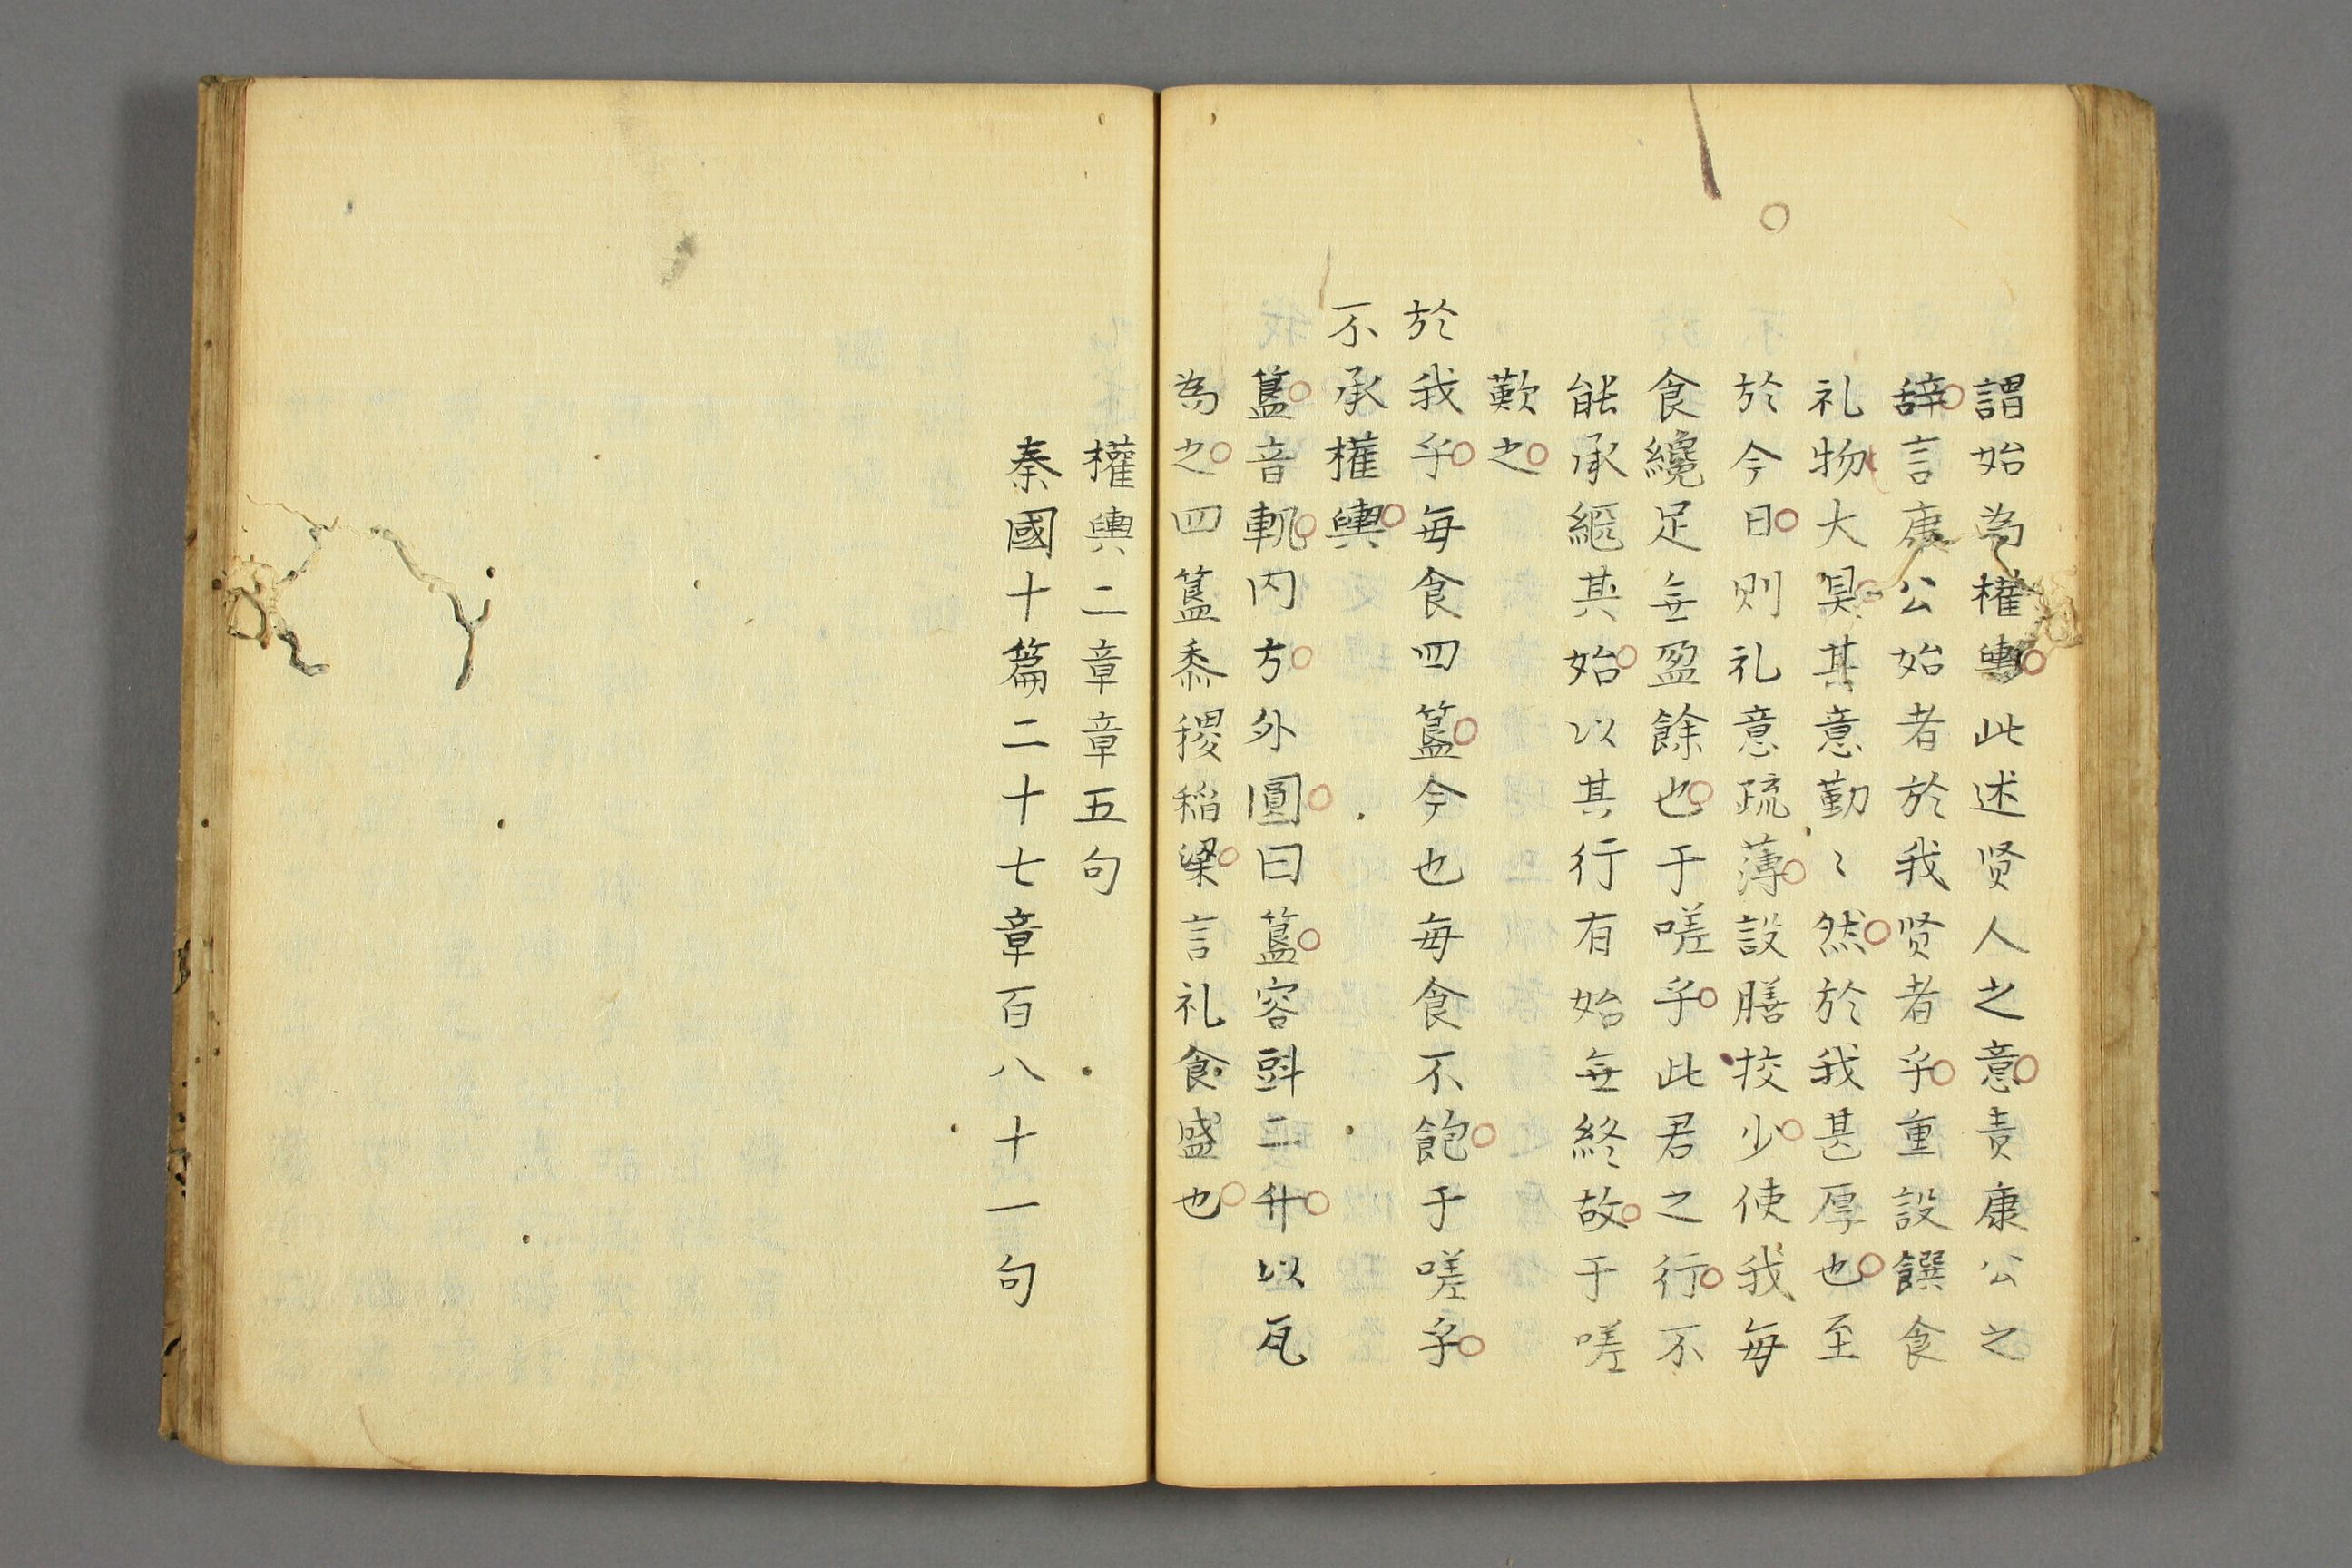 謂始為權輿此述贤人之意责康公之
辞言康公始者於我贤者乎重設饌食
礼物大具其意勤〻然於我甚厚也至
於今日則礼意疏薄設膳挍少使我每
食纔足無盈餘也于嗟乎此君之行不
能承継其始以其行有始無終故于嗟
歎之
於我乎每食四簋今也每食不飽于嗟乎
不承權輿
簋音軌内方外圓曰簋容斞二升以瓦
為之四簋黍稷稲梁言礼食盛也
權輿二章章五句
秦國十篇二十七章百八十一句